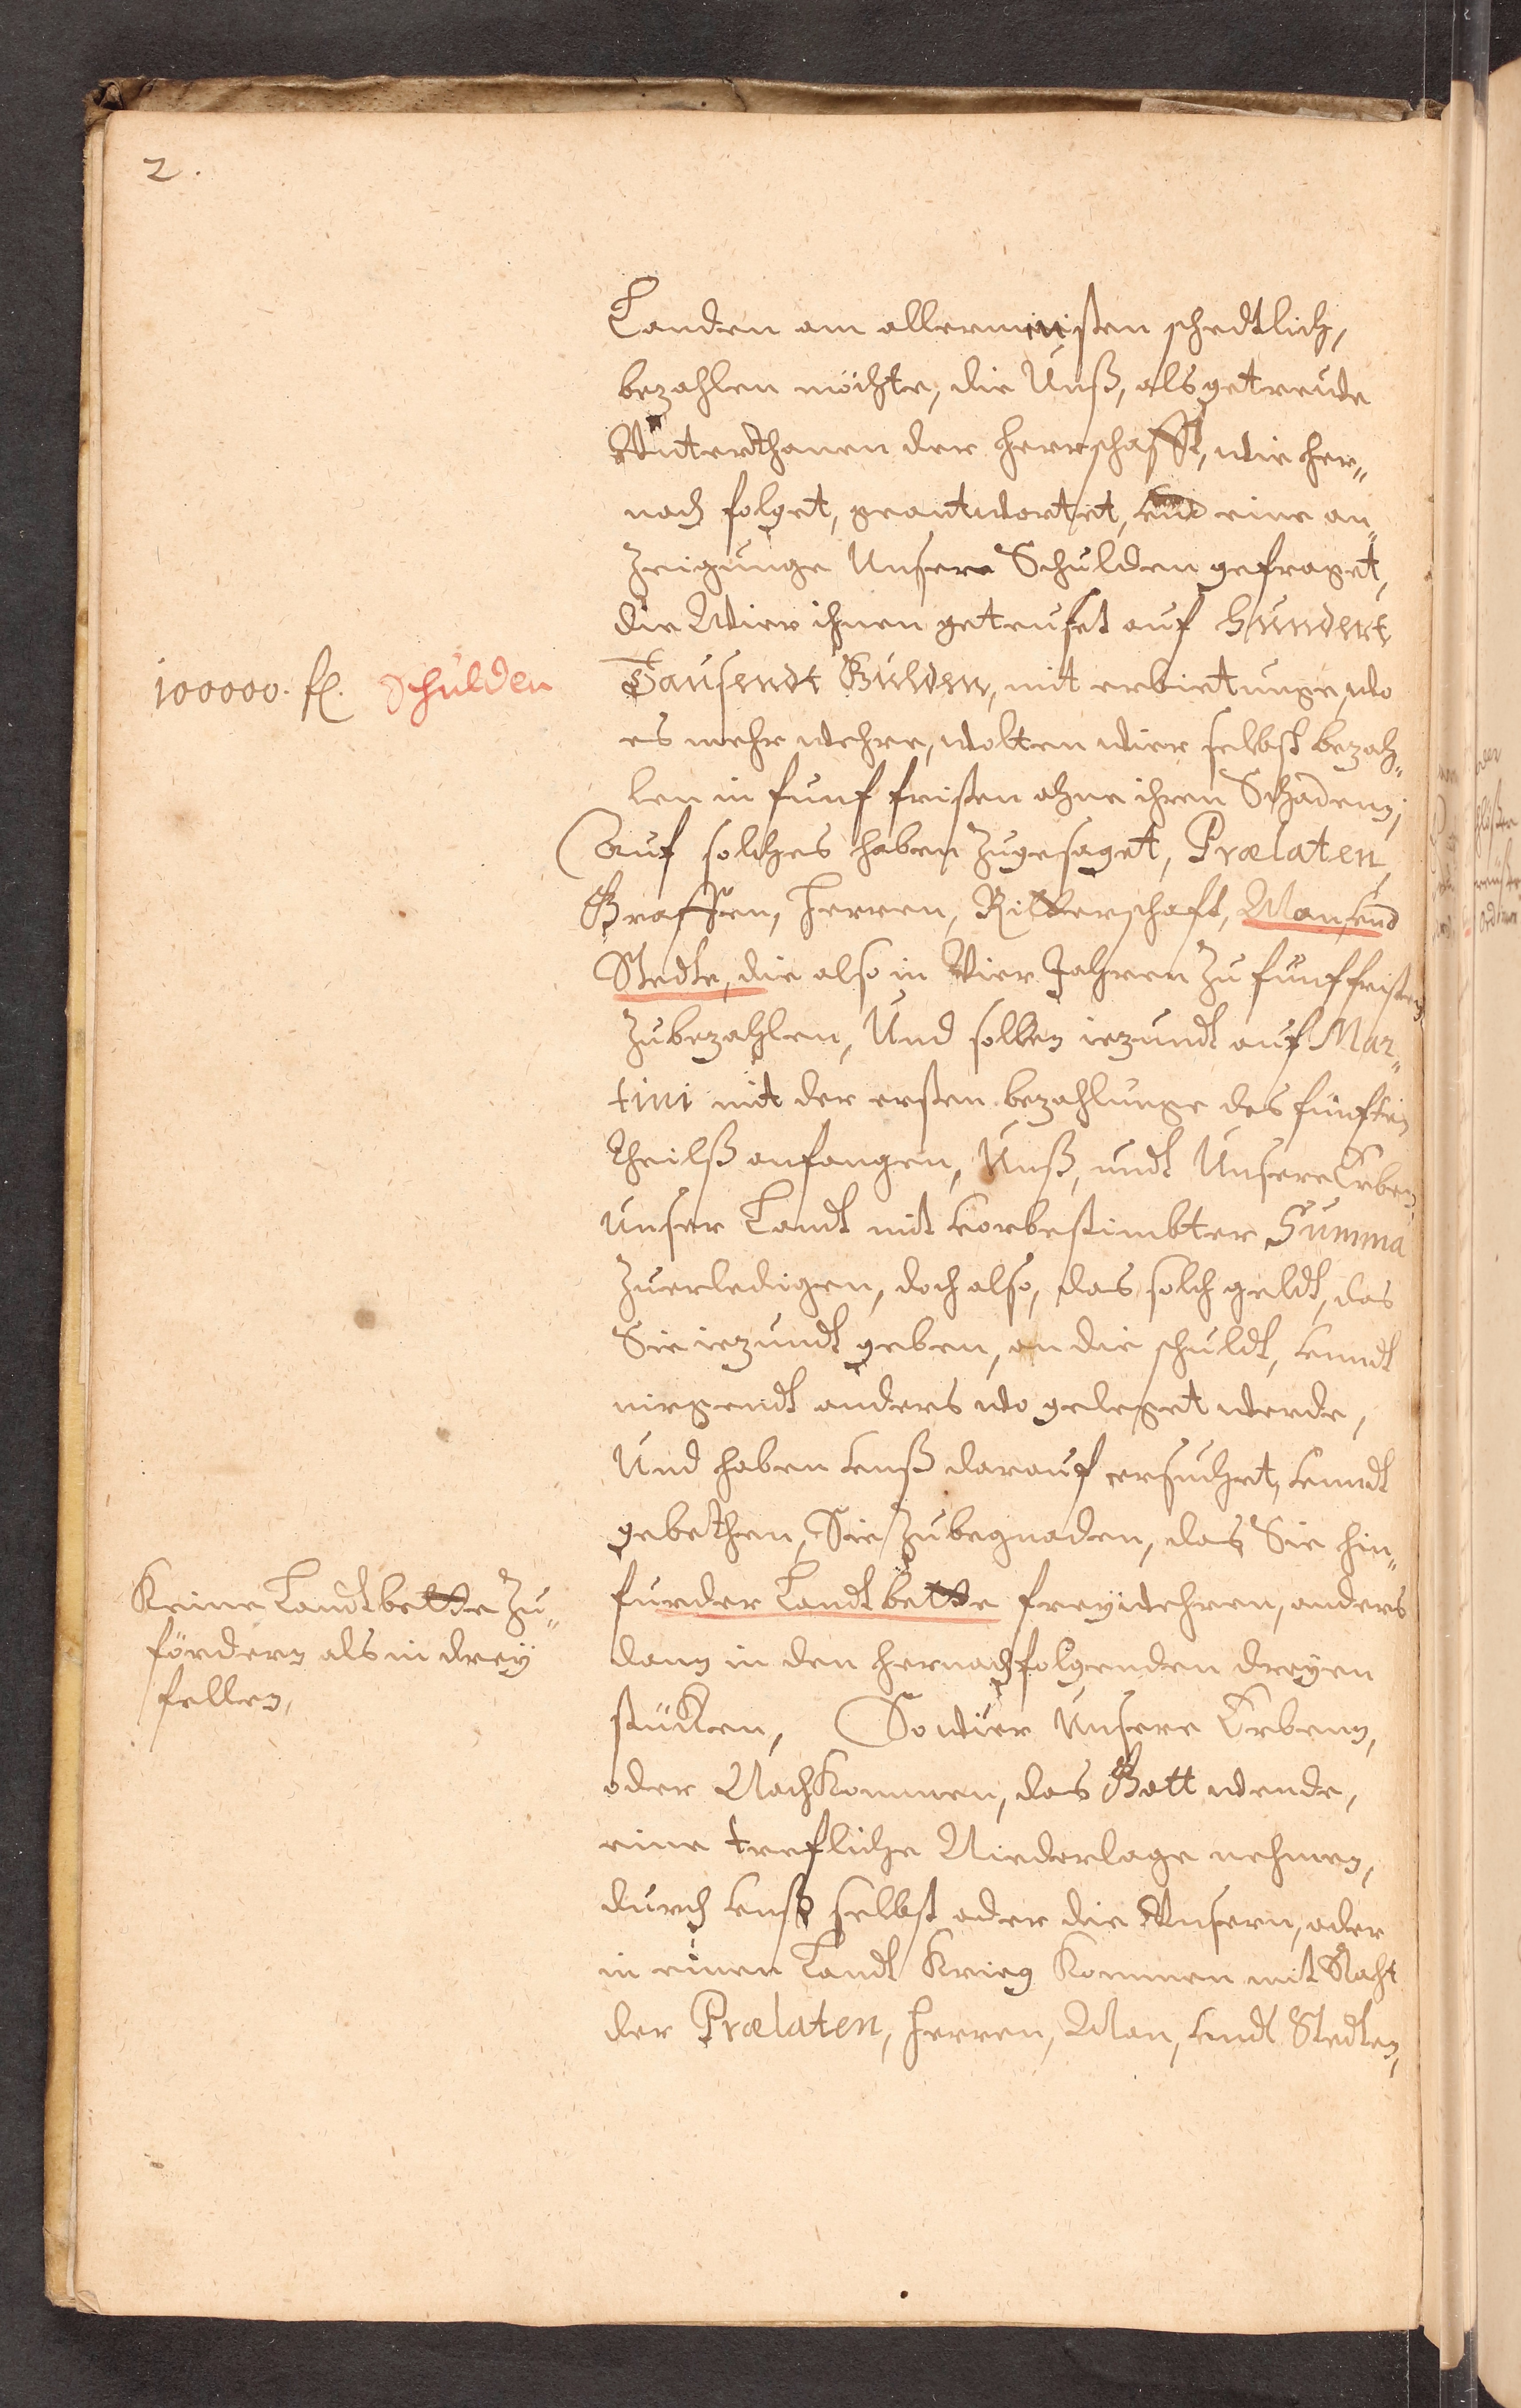 2.
Landen am allerministen schedtlich,
bezahlen möchte, die Unß, als getreude
Unterthanen der Herrschafft, wie her„
nach folget, geantwortet, vnd eine an„
zeigunge Unsere Schulden gefraget,
die Wier ihnen geteuset auf Hundert
100000. fl. Schulden
Tausendt Gulden, mit erbietunge, wo
es mehr wehre, wolten wier selbst bezah„
len in funf fristen ohne ihren Schadenn,
Auf solches haben zugesaget, Prælaten,
Graffen, Herren, Ritterschaft, Man, vnd
Stedte, die also in Vier Jahren zu funf fristen
zubezahlen, Und sollen iezundt auf Mar„
tini mit der ersten bezahlunge des funften
theilß anfangen, Unß, undt Unsere Erben,
unser Landt mit vorbestimbter Summa
zuerledigen, doch also, das solch geldt, das
Sie iezundt geben, an die schuldt, vnndt
nirgendt anders wo geleget werde,
Und haben vnß darauf ersuchet, vnndt
gebethen, Sie zubegnaden, das Sie hin„
Keine Landtbette zu„
fördern als in drey
fellen,
furder Landtbette frey wehren, anders
dann in den hernachfolgenden dreyen
stücken, So wier Unsere Erbenn,
oder Nachkommen, das Gott wende,
eine trefliche Niederlage nehmen,
durch vnß selbst oder die Unsern, oder
in einen Landt Krieg kommen mit Raht
der Prælaten, Herren, Man, vndt Stedten,